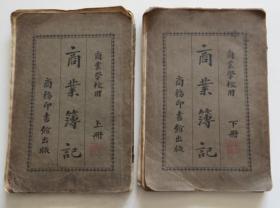 商業學校用
商業簿記
上册
商務印書館出版
商業學校用
商業簿記
下册
商務印書館出版